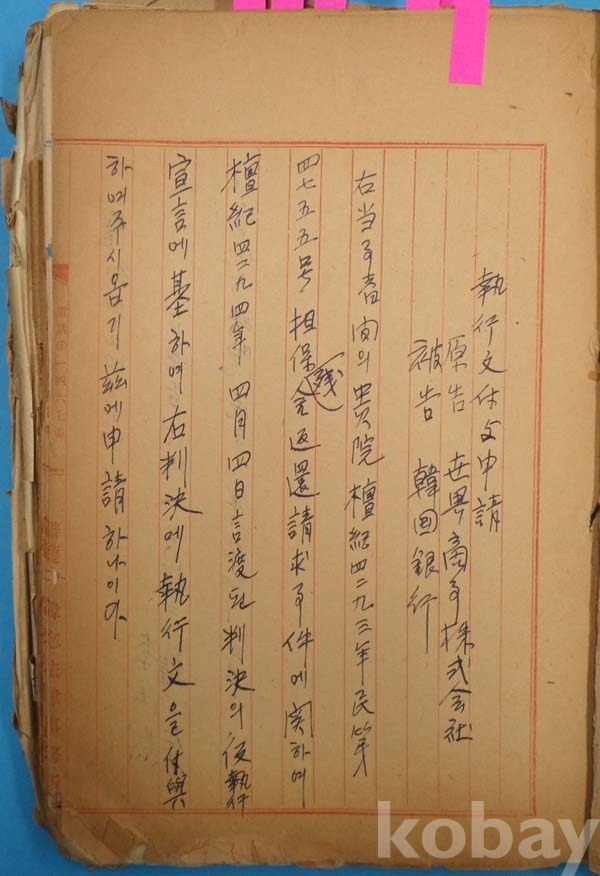 執行文付与申請
原告 世興商事株式会社
被告 韓国銀行
右当事者間의 貴院 檀紀四二九三年民第
四七五五号 担保金残返還請求事件에 関하여
檀紀四二九四年 四月 四日 言渡된 判決의 仮執行
宣言에 基하여 右判決에 執行文을 付與
하여주시옵기 玆에 申請하나이다
kobay